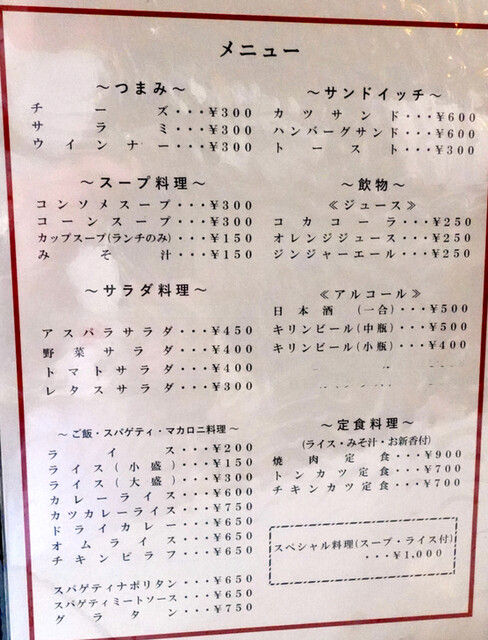 メニュー
～つまみ～
チーズ・・・¥300
サラミ・・・¥300
ウインナー・・・¥300
～スープ料理～
コンソメスープ・・・¥300
コーンスープ・・・¥300
カップスープ(ランチのみ)・・・¥150
みそ汁・・・¥150
～サラダ料理～
アスパラサラダ・・・¥450
野菜サラダ・・・¥400
トマトサラダ・・・¥400
レタスサラダ・・・¥300
～ご飯・スパゲティ・マカロニ料理～
ライス・・・¥200
ライス(小盛)・・・¥150
ライス(大盛)・・・¥300
カレーライス・・・¥600
カツカレーライス・・・¥750
ドライカレー・・・¥650
オムライス・・・¥650
チキンピラフ・・・¥650
スパゲティナポリタン・・・¥650
スパゲティミートソース・・・¥650
グラタン・・・¥750
～サンドイッチ～
カツサンド・・・¥600
ハンバーグサンド・・・¥600
トースト・・・¥300
～飲物～
≪ジュース≫
コカコーラ・・・¥250
オレンジジュース・・・¥250
ジンジャーエール・・・¥250
≪アルコール≫
日本酒(一合)・・・¥500
キリンビール(中瓶)・・・¥500
キリンビール(小瓶)・・・¥400
～定食料理～
(ライス・みそ汁・お新香付)
焼肉定食・・・¥900
トンカツ定食・・・¥700
チキンカツ定食・・・¥700
スペシャル料理(スープ・ライス付)
・・・¥1,000